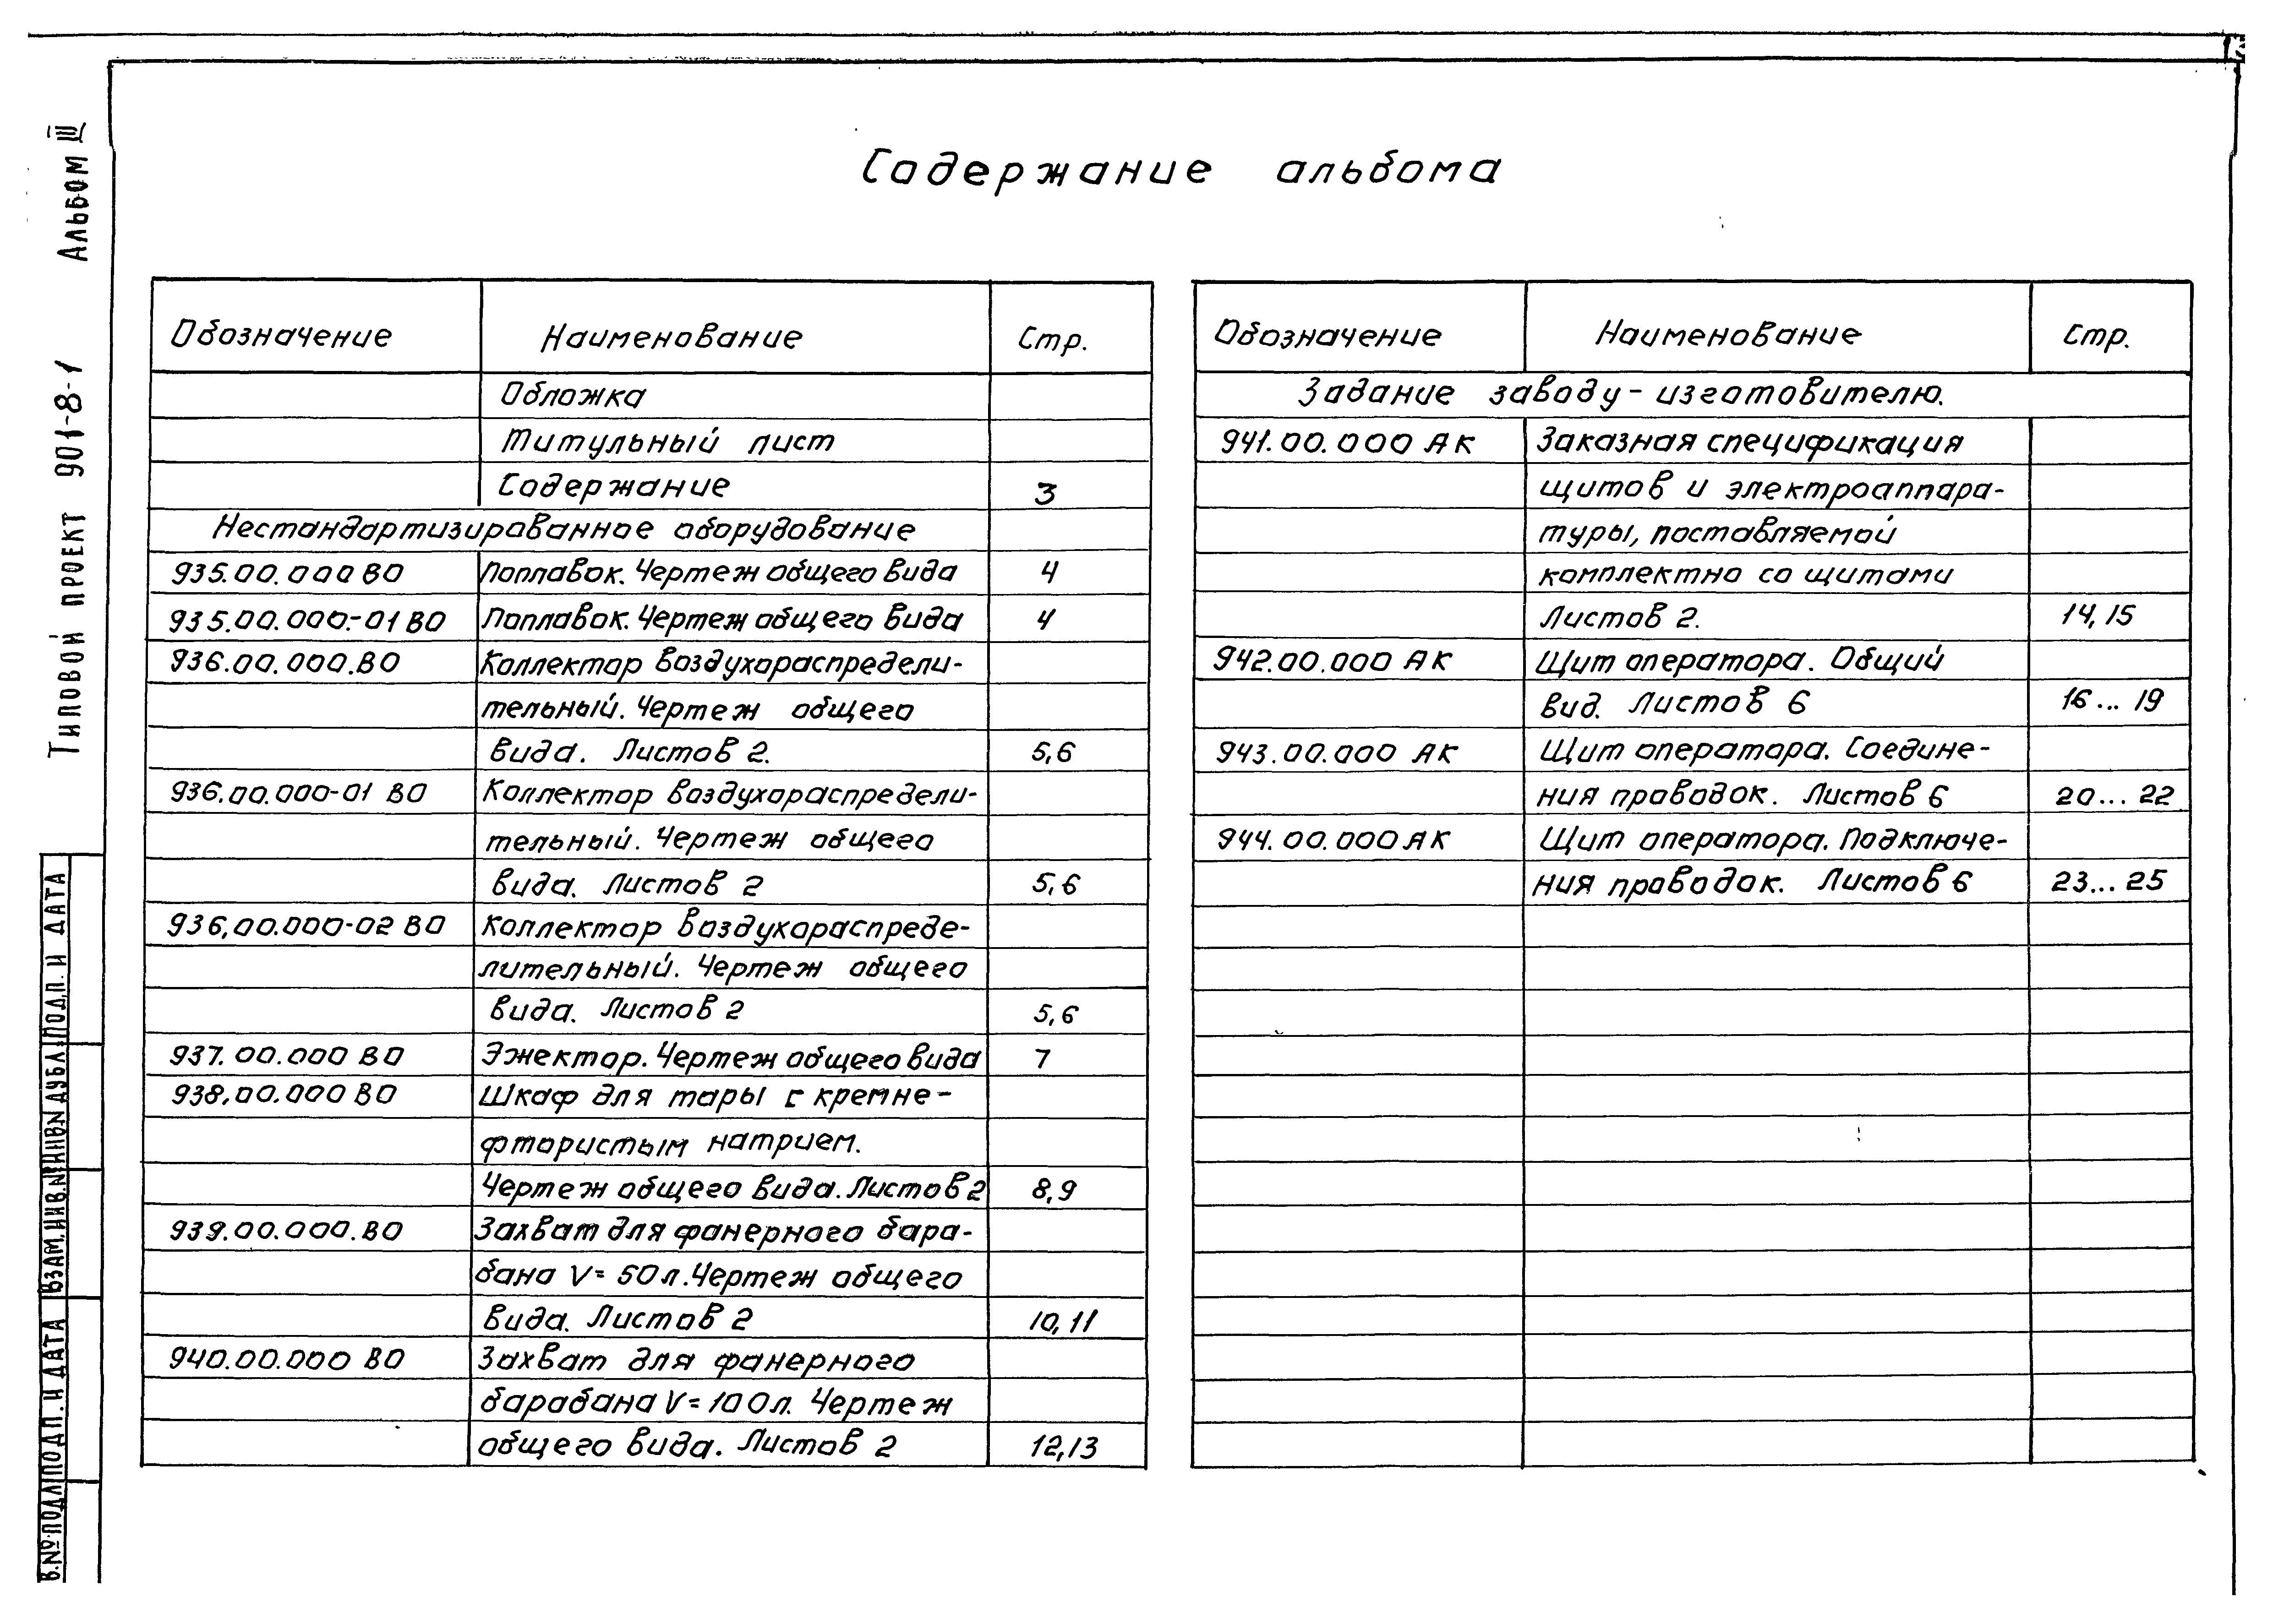 Содержание альбома
Типовой проект 901-8-1 Альбом III
Обозначение Наименование Стр.
Обложка
Титульный лист
Содержание 3
Нестандартизированное оборудование
935.00.000 ВО Поплавок. Чертеж общего вида 4
935.00.000.-01 ВО Поплавок. Чертеж общего вида 4
936.00.000.ВО Коллектор воздухораспредели-
тельный. Чертеж общего
вида. Листов 2. 5,6
936.00.000-01 ВО Коллектор воздухораспредели-
тельный. Чертеж общего
вида. Листов 2 5,6
936,00.000-02 ВО Коллектор воздухораспреде-
лительный. Чертеж общего
вида. Листов 2 5,6
937.00.000 ВО Эжектор. Чертеж общего вида 7
938,00.000 ВО Шкаф для тары с кремне-
фтористым натрием.
Чертеж общего вида. Листов 2 8,9
939.00.000.ВО Захват для фанерного бара-
бана V= 50л. Чертеж общего
вида. Листов 2 10,11
940.00.000 ВО Захват для фанерного
барабана V=100л. Чертеж
общего вида. Листов 2 12,13
Обозначение Наименование Стр.
Задание заводу-изготовителю.
941.00.000 АК Заказная спецификация
щитов и электроаппара-
туры, поставляемой
комплектно со щитами
Листов 2. 14,15
942.00.000 АК Щит оператора. Общий
вид. Листов 6 16...19
943.00.000 АК Щит оператора. Соедине-
ния проводок. Листов 6 20...22
944.00.000 АК Щит оператора. Подключе-
ния проводок. Листов 6 23...25
В.№ подл Подп. и дата Взам. инв.№ Инв№ дубл. Подп. и дата